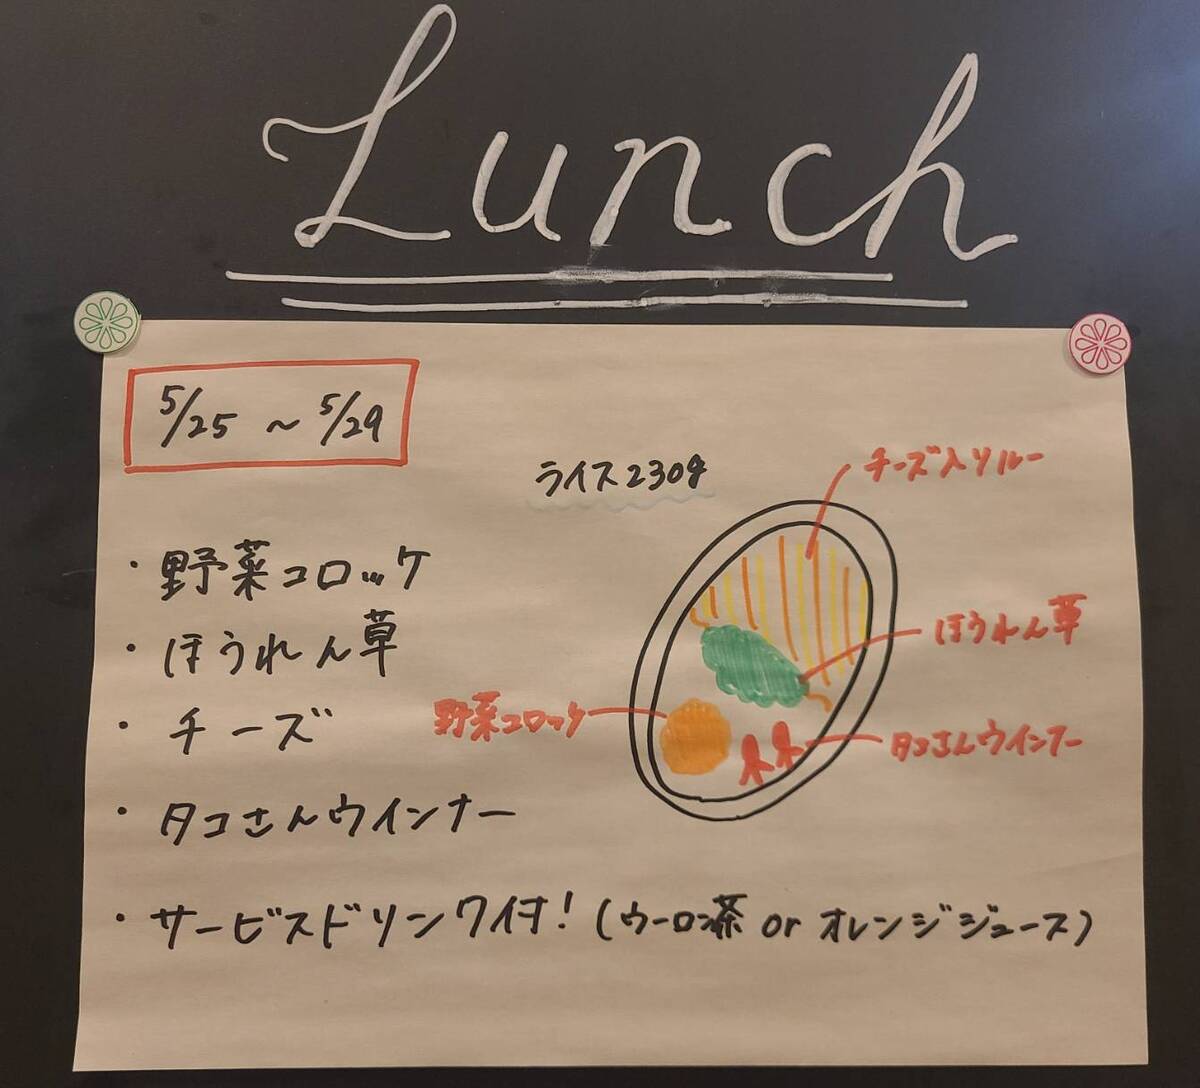 Lunch
5/25 ~ 5/29
ライス230g
チーズ入りルー
・野菜コロッケ
・ほうれん草
ほうれん草
・チーズ
野菜コロッケ
タコさんウインナー
・タコさんウインナー
・サービスドリンク付!(ウーロン茶 or オレンジジュース)